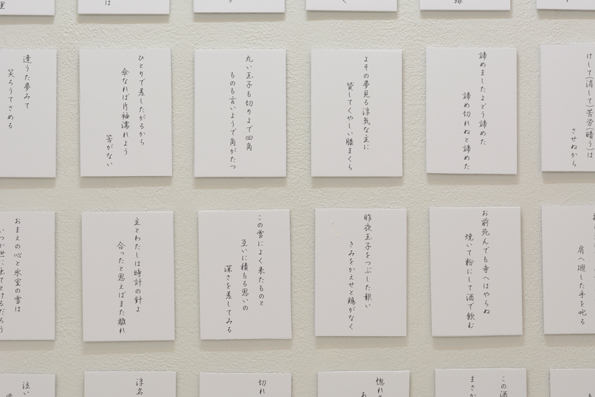 諦めましたよどう諦めた
諦め切れぬと諦めた
よその夢見る浮気な主に
貸してくやしい膝まくら
丸い玉子も切りよで四角
ものも言いようで角がたつ
ひとりで差したがるから
傘なれば片袖濡れよう
筈がない
逢うた夢みて
笑ろうてさめる
お前死んでも寺へはやらぬ
焼いて粉にして酒で飲む
昨夜玉子をつぶした報い
きみをかえせと鶏がなく
この雪によく来たものと
互いに積もる思いの
深さを差してみる
主とわたしは時計の針よ
合ったと思えばまた離れ
おまえの心と氷室の雪は
肩へ廻した手を叱る
この酒
まさか
惚れ
切れ
浮名